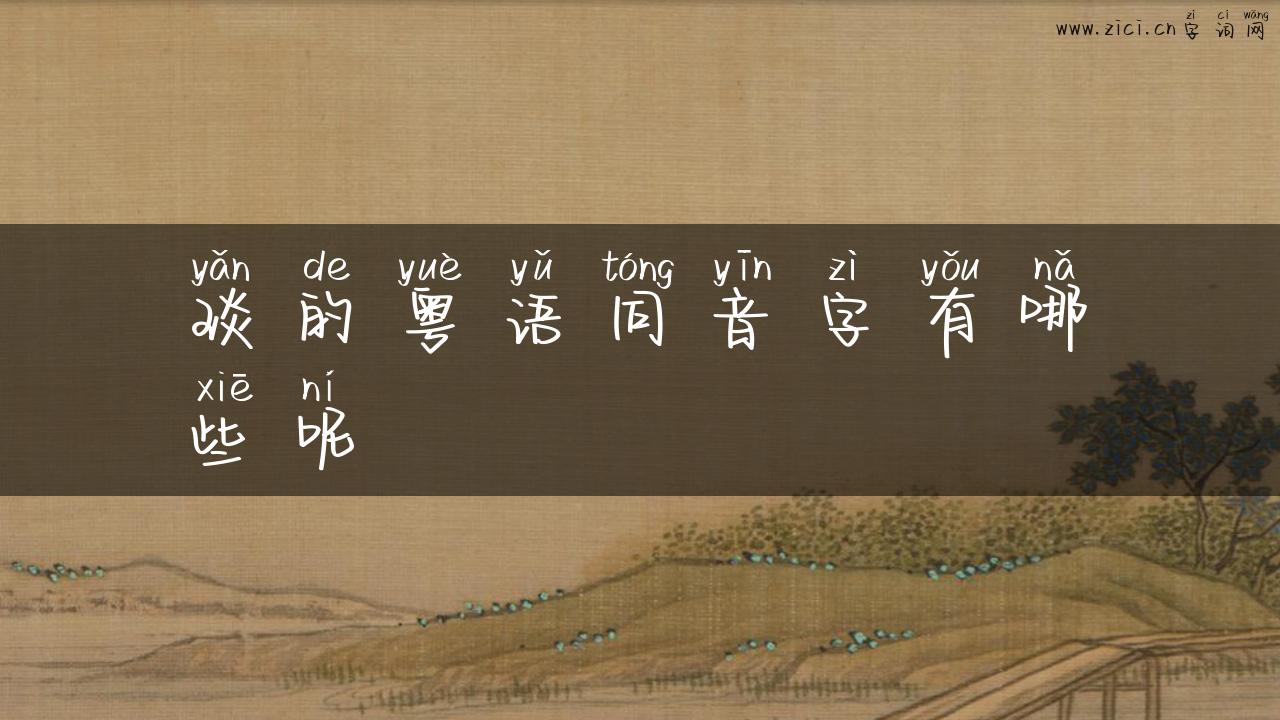 www.zici.cn zì cí wǎng
字词网
yǎn de yuè yǔ tóng yīn zì yǒu nǎ
琰的粤语同音字有哪
xiē ní
些呢